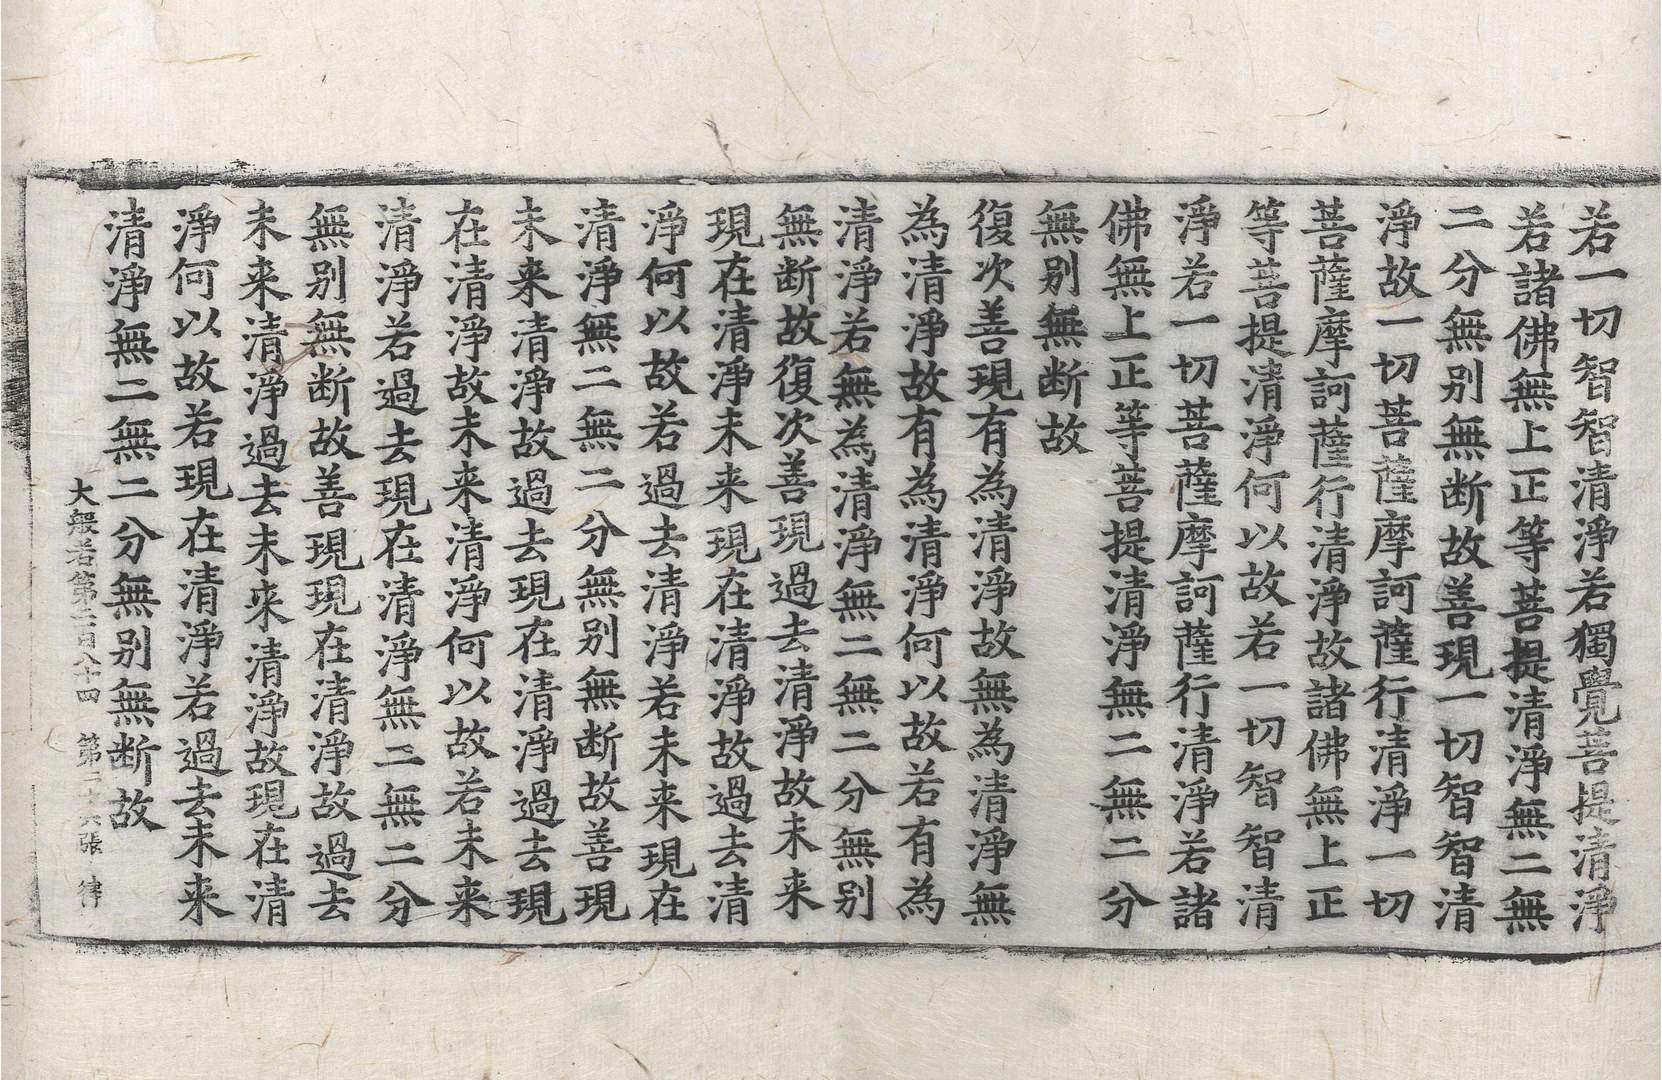 若一切智智清淨若獨覺菩提清淨
若諸佛無上正等菩提清淨無二無
二分無别無断故善現一切智智清
淨故一切菩薩摩訶薩行清淨一切
菩薩摩訶薩行清淨故諸佛無上正
等菩提清淨何以故若一切智智清
淨若一切菩薩摩訶薩行清淨若諸
佛無上正等菩提清淨無二無二分
無别無断故
復次善現有為清淨故無為清淨無
為清淨故有為清淨何以故若有為
清淨若無為清淨無二無二分無别
無断故復次善現過去清淨故未来
現在清淨未来現在清淨故過去清
淨何以故若過去清淨若未来現在
清淨無二無二分無别無断故善現
未来清淨故過去現在清淨過去現
在清淨故未来清淨何以故若未来
清淨若過去現在清淨無二無二分
無别無断故善現現在清淨故過去
未来清淨過去未来清淨故現在清
淨何以故若現在清淨若過去未来
清淨無二無二分無别無断故
大般若第二百八十四 第二十六張 律